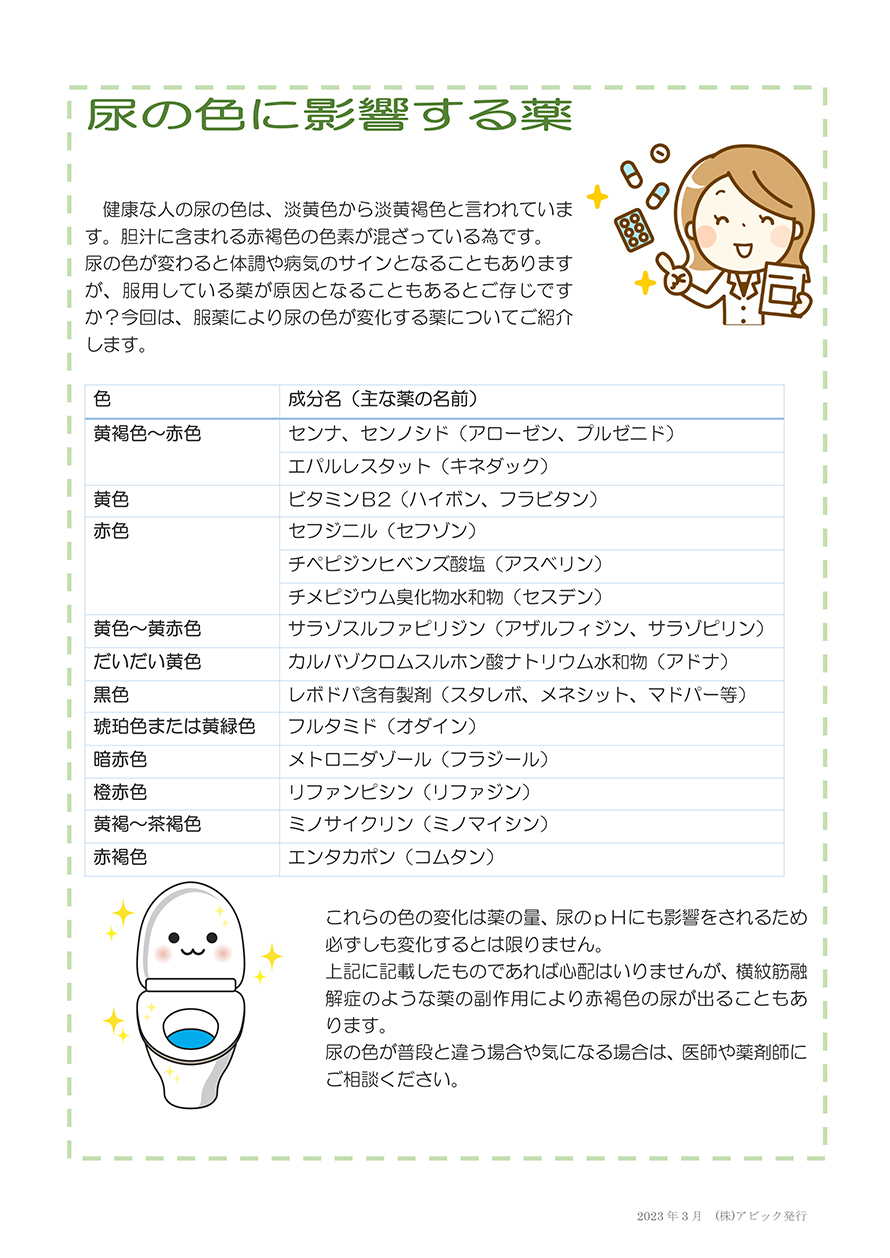 尿の色に影響する薬
健康な人の尿の色は、淡黄色から淡黄褐色と言われていま
す。胆汁に含まれる赤褐色の色素が混ざっている為です。
尿の色が変わると体調や病気のサインとなることもあります
が、服用している薬が原因となることもあるとご存じです
か？今回は、服薬により尿の色が変化する薬についてご紹介
します。
色 成分名（主な薬の名前）
黄褐色～赤色 センナ、センノシド（アローゼン、プルゼニド）
エパルレスタット（キネダック）
黄色 ビタミンＢ２（ハイボン、フラビタン）
赤色 セフジニル（セフゾン）
チペピジンヒベンズ酸塩（アスベリン）
チメピジウム臭化物水和物（セスデン）
黄色～黄赤色 サラゾスルファピリジン（アザルフィジン、サラゾピリン）
だいだい黄色 カルバゾクロムスルホン酸ナトリウム水和物（アドナ）
黒色 レボドパ含有製剤（スタレボ、メネシット、マドパー等）
琥珀色または黄緑色 フルタミド（オダイン）
暗赤色 メトロニダゾール（フラジール）
橙赤色 リファンピシン（リファジン）
黄褐～茶褐色 ミノサイクリン（ミノマイシン）
赤褐色 エンタカポン（コムタン）
これらの色の変化は薬の量、尿のｐＨにも影響をされるため
必ずしも変化するとは限りません。
上記に記載したものであれば心配はいりませんが、横紋筋融
解症のような薬の副作用により赤褐色の尿が出ることもあ
ります。
尿の色が普段と違う場合や気になる場合は、医師や薬剤師に
ご相談ください。
2023 年 3 月 (株)アピック発行